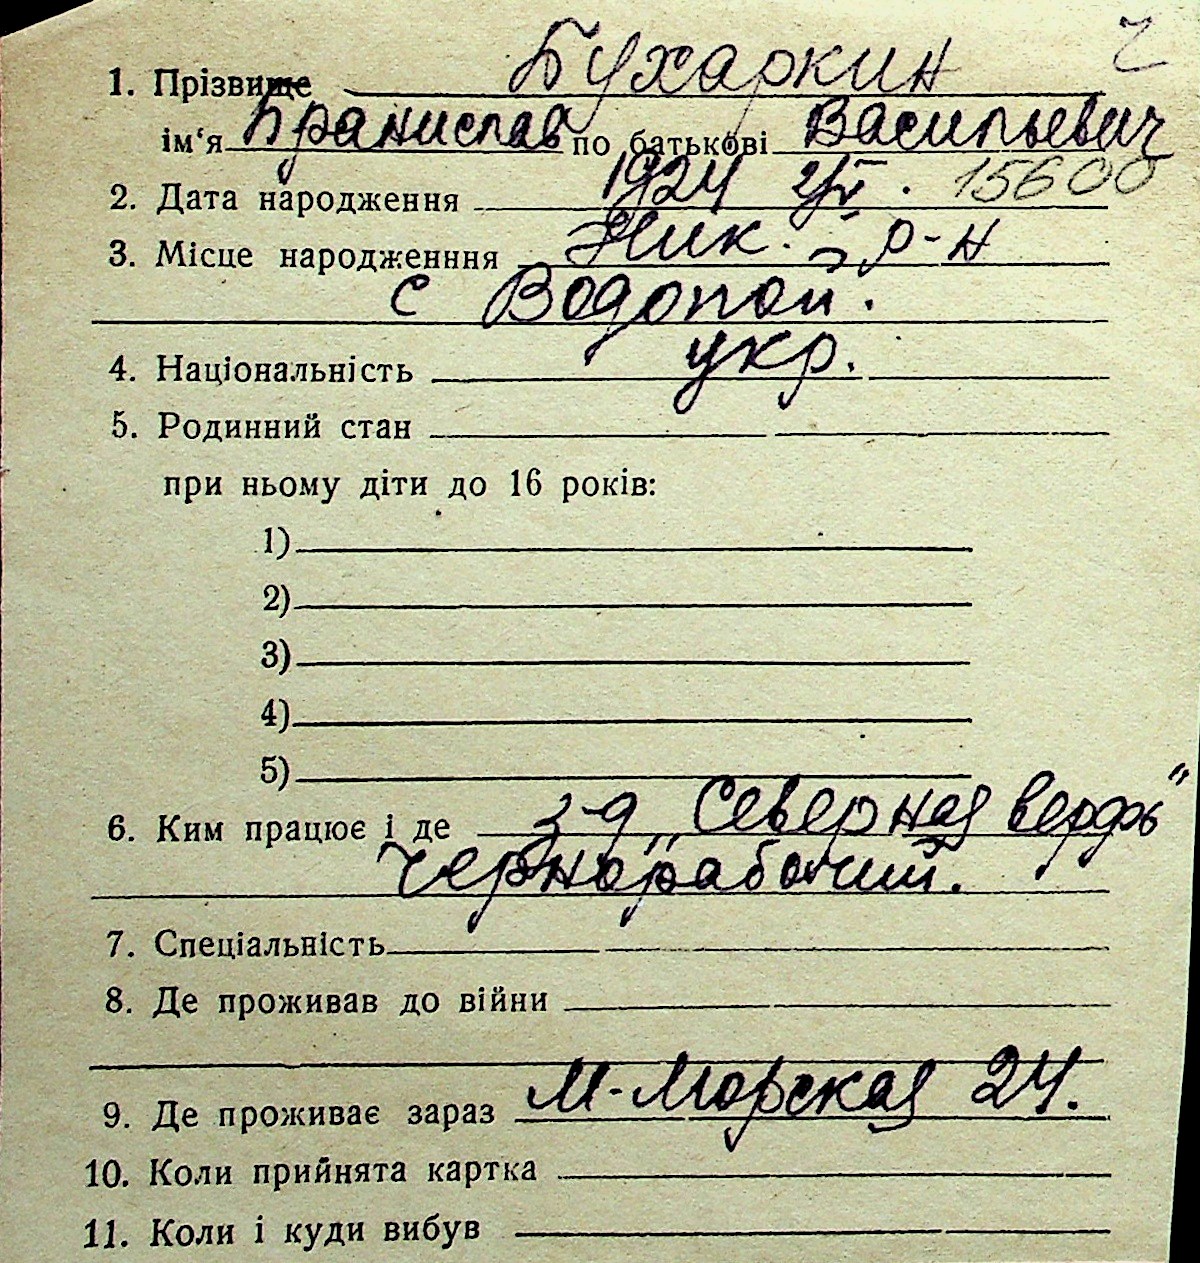 1. Прізвище Бухаркин
ім‘я Бранислав по батькові Васильевич
2. Дата народження 1924 15600
3. Місце народженння Ник. р-н
с Водопой.
4. Національність укр.
5. Родинний стан
при ньому діти до 16 років:
1)
2)
3)
4)
5)
6. Ким працює і де з-д „Северная верфь"
Чернорабочий.
7. Спеціальність
8. Де проживав до війни
9. Де проживає зараз М-Морская 24.
10. Коли прийнята картка
11. Коли і куди вибув